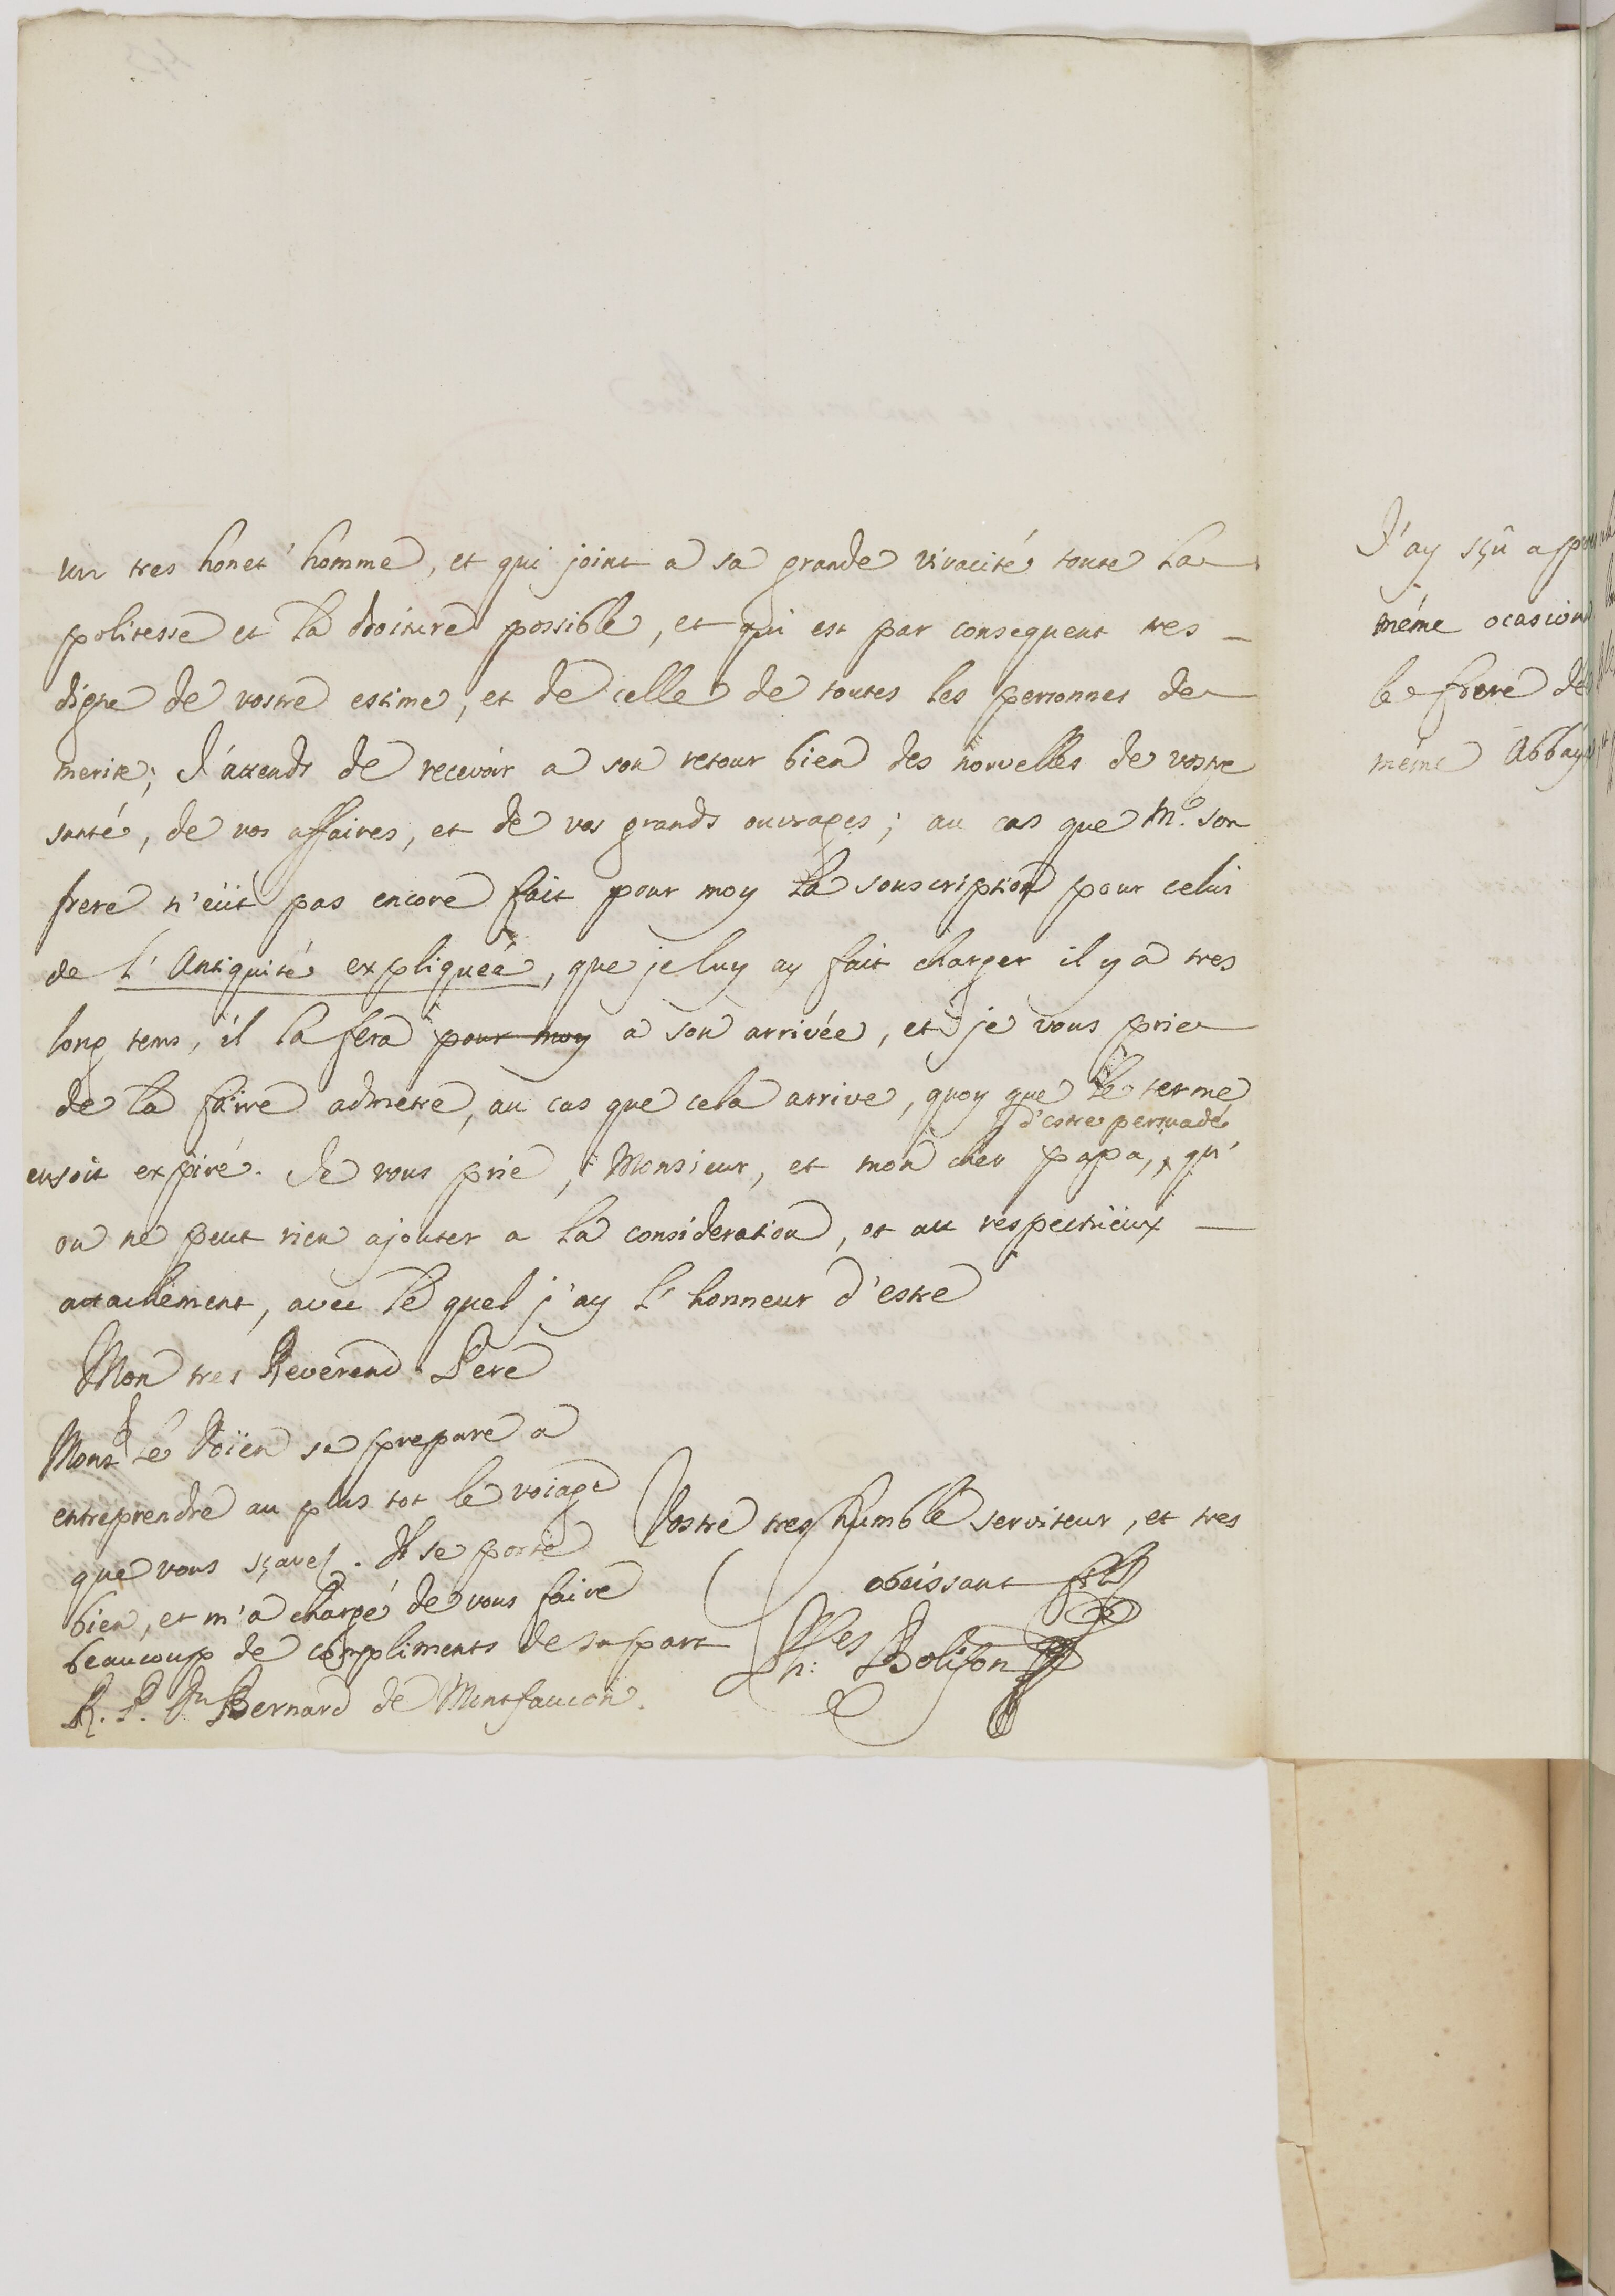 un tres honet' homme, et qui joint a sa grande vivacité toute la
politesse et la droiture possible, et qui est par consequent tres
digne de vostre estime, et de celle de toutes les personnes de
merite; J'attends de recevoir a son retour bien des nouvelles de vostre
santé, de vos affaires, et de vos grands ouvrages; au cas que Mr. son
frere n'eût pas encore fait pour moy la souscription pour celui
de l'Antiquité expliquée, que je luy ay fait charger il y a tres
long tems, il la fera pour moy a son arrivée, et je vous prie
de la faire admetre, au cas que cela arrive, quoy que le terme
d'estre persuadé
en soit expiré. Je vous prie, Monsieur, et mon cher papa, qu'
on ne peut rien ajouter a la consideration, et au respectüeux
attachement, avec le quel j'ay l'honneur d'estre
Mon tres Reverend Pere
Monsr le Doïen se prepare a
entreprendre au plus tot le voiage
que vous sçavez. Il se porte
bien, et m'a chargé de vous faire
beaucoup de compliments de sa part
R. P. Dn Bernard de Montfaucon.
Vostre tres humble serviteur, et tres
obeissant
J'ay sçû
même ocasion
le frere de
même Abbaye